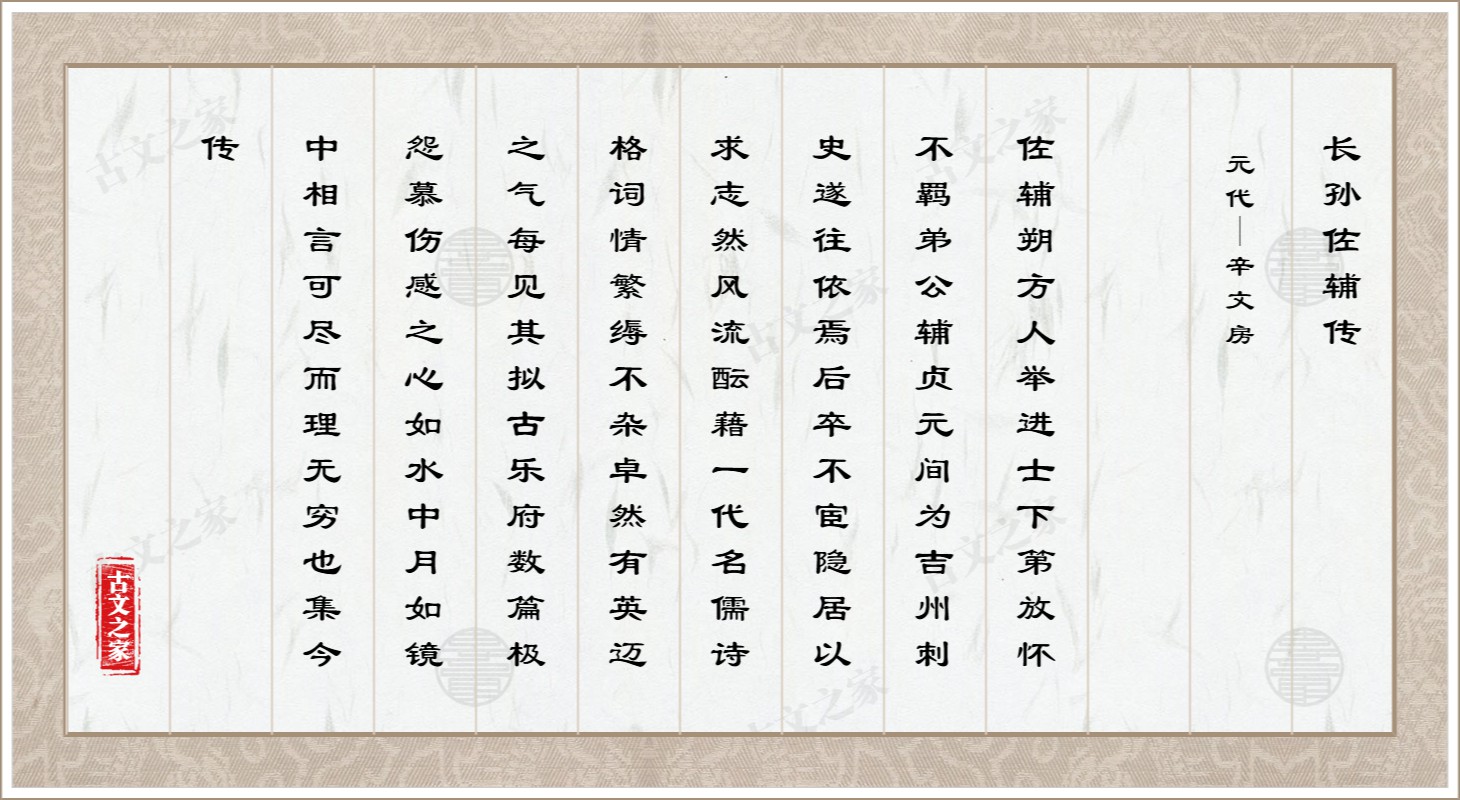 长孙佐辅传
元代—辛文房
佐辅朔方人举进士下第放怀
不羁弟公辅贞元间为吉州刺
史遂往依焉后卒不宦隐居以
求志然风流酝藉一代名儒诗
格词情繁缛不杂卓然有英迈
之气每见其拟古乐府数篇极
怨慕伤感之心如水中月如镜
中相言可尽而理无穷也集今
传
古文之家